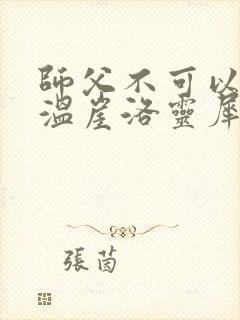 師父不可以
溫崖洛靈犀
張茵